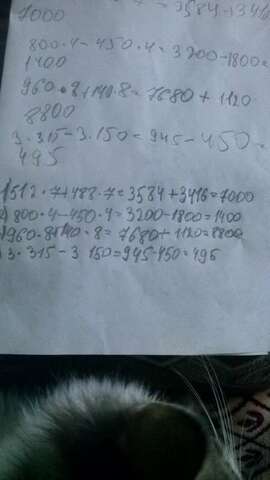 3584+3416
7000
800·4-450·4=3200-1800=
1400
960·8+140·8=7680+1120
8800
3·315-3·150=945-450=
495
1)512·7+488·7=3584+3416=7000
2)800·4-450·4=3200-1800=1400
)960·8+140·8=7680+1120=8800
)3·315-3 150=945-450=495